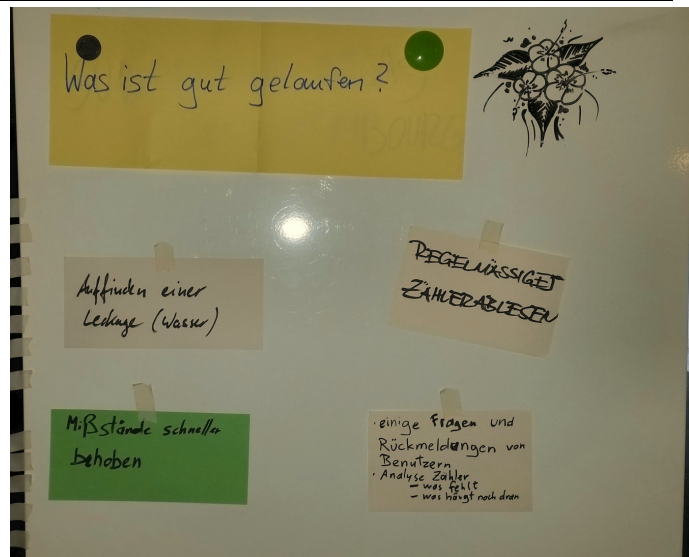 Was ist gut gelaufen?
Auffinden einer
Leckage (Wasser)
REGELMÄSSIGES
ZÄHLERABLESEN
Mißstände schneller
behoben
· einige Fragen und
Rückmeldungen von
Benutzern
· Analyse Zähler
– was fehlt
– was hängt noch dran